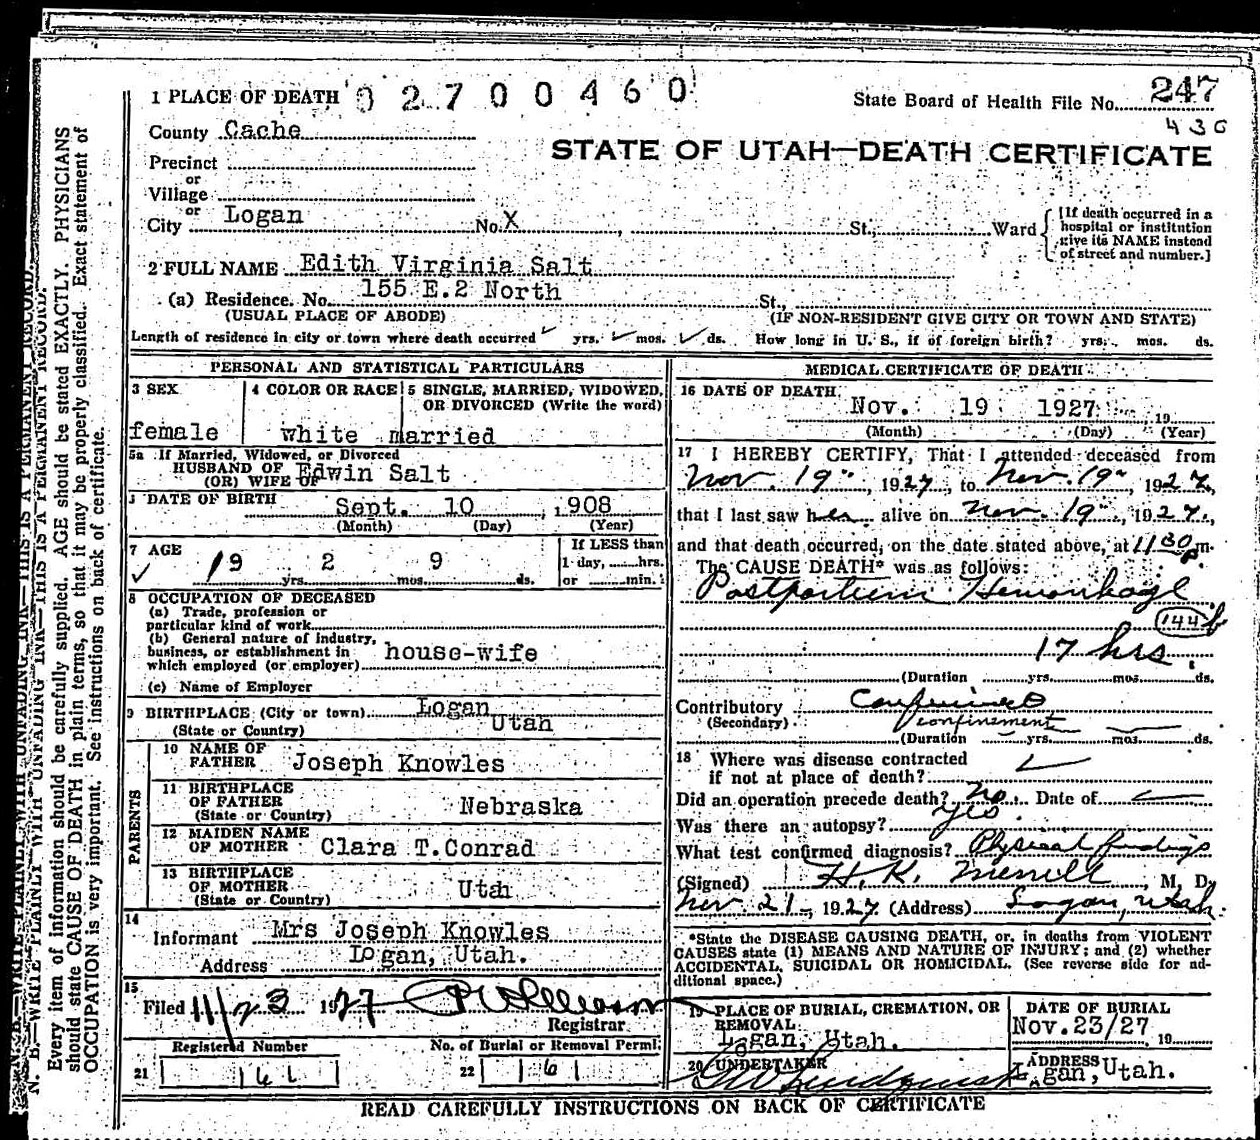 1 PLACE OF DEATH 02700460 State Board of Health File No. 247
430
County Cache
STATE OF UTAH—DEATH CERTIFICATE
Precinct
or
Village
or
City Logan No. X St., Ward [If death occurred in a hospital or institution give its NAME instead of street and number.]
2 FULL NAME Edith Virginia Salt
(a) Residence. No. 155 E.2 North St.,
(USUAL PLACE OF ABODE) (IF NON-RESIDENT GIVE CITY OR TOWN AND STATE)
Length of residence in city or town where death occurred ✓ yrs. ✓ mos. ✓ ds. How long in U. S., if of foreign birth? yrs. mos. ds.
PERSONAL AND STATISTICAL PARTICULARS
3 SEX 4 COLOR OR RACE 5 SINGLE, MARRIED, WIDOWED, OR DIVORCED (Write the word)
female white married
5a If Married, Widowed, or Divorced
HUSBAND OF
(OR) WIFE OF Edwin Salt
DATE OF BIRTH Sept. 10 , 1908
(Month) (Day) (Year)
7 AGE If LESS than
✓ 19 2 9 1 day, hrs.
yrs. mos. ds. or min.
8 OCCUPATION OF DECEASED
(a) Trade, profession or
particular kind of work
(b) General nature of industry,
business, or establishment in
which employed (or employer) house-wife
(c) Name of Employer
9 BIRTHPLACE (City or town) Logan
(State or Country) Utah
PARENTS
10 NAME OF
FATHER Joseph Knowles
11 BIRTHPLACE
OF FATHER
(State or Country) Nebraska
12 MAIDEN NAME
OF MOTHER Clara T.Conrad
13 BIRTHPLACE
OF MOTHER
(State or Country) Utah
14
Informant Mrs Joseph Knowles
Address Logan, Utah.
15
Filed 11/23 1927
Registrar
Registered Number No. of Burial or Removal Permit
21 161 22 161
MEDICAL CERTIFICATE OF DEATH
16 DATE OF DEATH
Nov. 19 1927 19
(Month) (Day) (Year)
17 I HEREBY CERTIFY, That I attended deceased from
Nov. 19", 1927, to Nov. 19", 1927,
that I last saw her alive on Nov. 19", 1927,
and that death occurred, on the date stated above, at 11 30 p m.
The CAUSE DEATH* was as follows:
Postpartum Hemorrhage
144b
17 hrs.
(Duration yrs. mos. ds.
Contributory
(Secondary) confinement
(Duration yrs. mos. ds.
18 Where was disease contracted
if not at place of death? ✓
Did an operation precede death? No. Date of
Was there an autopsy? Yes.
What test confirmed diagnosis? Physical findings
(Signed) H. K. Merrill, M. D.
Nov. 21-, 1927 (Address) Logan, Utah.
*State the DISEASE CAUSING DEATH, or, in deaths from VIOLENT
CAUSES state (1) MEANS AND NATURE OF INJURY; and (2) whether
ACCIDENTAL, SUICIDAL OR HOMICIDAL. (See reverse side for ad-
ditional space.)
19 PLACE OF BURIAL, CREMATION, OR
REMOVAL
Logan, Utah.
DATE OF BURIAL
Nov.23/27 , 19
20 UNDERTAKER
ADDRESS
Logan,Utah.
READ CAREFULLY INSTRUCTIONS ON BACK OF CERTIFICATE
N. B.—WRITE PLAINLY WITH UNFADING INK—THIS IS A PERMANENT RECORD.
Every item of information should be carefully supplied. AGE should be stated EXACTLY. PHYSICIANS
should state CAUSE OF DEATH in plain terms, so that it may be properly classified. Exact statement of
OCCUPATION is very important. See instructions on back of certificate.